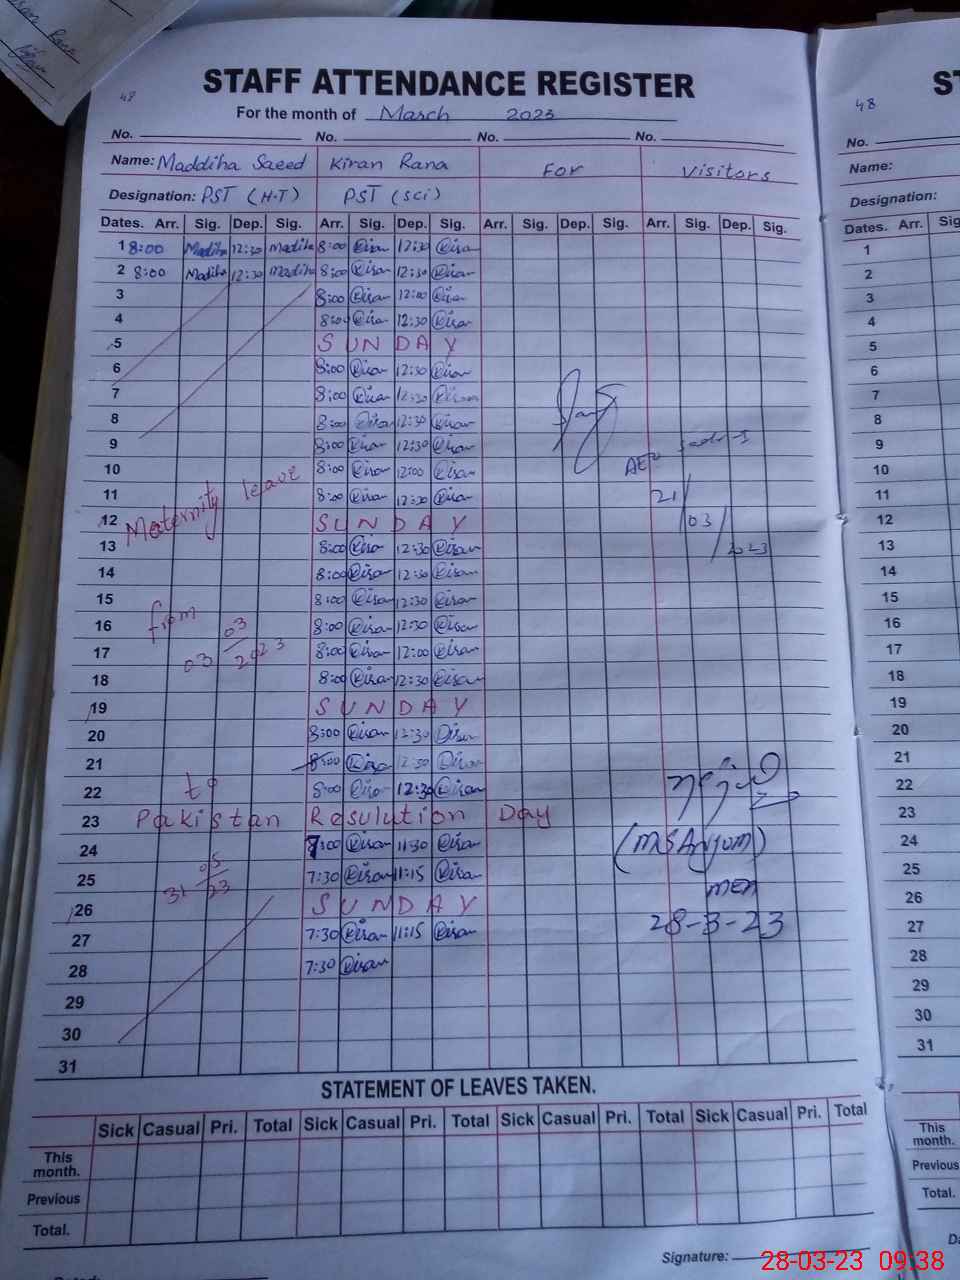 48
STAFF ATTENDANCE REGISTER
For the month of March 2023
No. No. No. No.
Name: Maddiha Saeed Kiran Rana For Visitors
Designation: PST (H.T) PST (sci)
Dates. Arr. Sig. Dep. Sig. Arr. Sig. Dep. Sig. Arr. Sig. Dep. Sig. Arr. Sig. Dep. Sig.
1 8:00 Madiha 12:30 Madiha 8:00 Kiran 12:30 Kiran
2 8:00 Madiha 12:30 Madiha 8:00 Kiran 12:30 Kiran
3 8:00 Kiran 12:00 Kiran
4 8:00 Kiran 12:30 Kiran
5 SUNDAY
6 8:00 Kiran 12:30 Kiran
7 8:00 Kiran 12:30 Kiran
8 8:00 Kiran 12:30 Kiran
9 8:00 Kiran 12:30 Kiran
10 8:00 Kiran 12:00 Kiran
AEO
11 8:00 Kiran 12:30 Kiran
21/03/2023
Maternity leave
12 SUNDAY
13 8:00 Kiran 12:30 Kiran
14 8:00 Kiran 12:30 Kiran
15 8:00 Kiran 12:30 Kiran
from
16 8:00 Kiran 12:30 Kiran
03 03/2023
17 8:00 Kiran 12:00 Kiran
18 8:00 Kiran 12:30 Kiran
19 SUNDAY
20 8:00 Kiran 12:30 Kiran
21 8:00 Kiran 12:30 Kiran
22 8:00 Kiran 12:30 Kiran
to
23 Pakistan Resulution Day
24 7:00 Kiran 11:30 Kiran
(MSAnjum)
25 7:30 Kiran 11:15 Kiran
31 05/23
MEA
26 SUNDAY
27 7:30 Kiran 11:15 Kiran
28-3-23
28 7:30 Kiran
29
30
31
STATEMENT OF LEAVES TAKEN.
Sick Casual Pri. Total Sick Casual Pri. Total Sick Casual Pri. Total Sick Casual Pri. Total
This month.
Previous
Total.
Signature:
48
No.
Name:
Designation:
Dates. Arr.
1
2
3
4
5
6
7
8
9
10
11
12
13
14
15
16
17
18
19
20
21
22
23
24
25
26
27
28
29
30
31
This month.
Previous
Total.
28-03-23 09:38